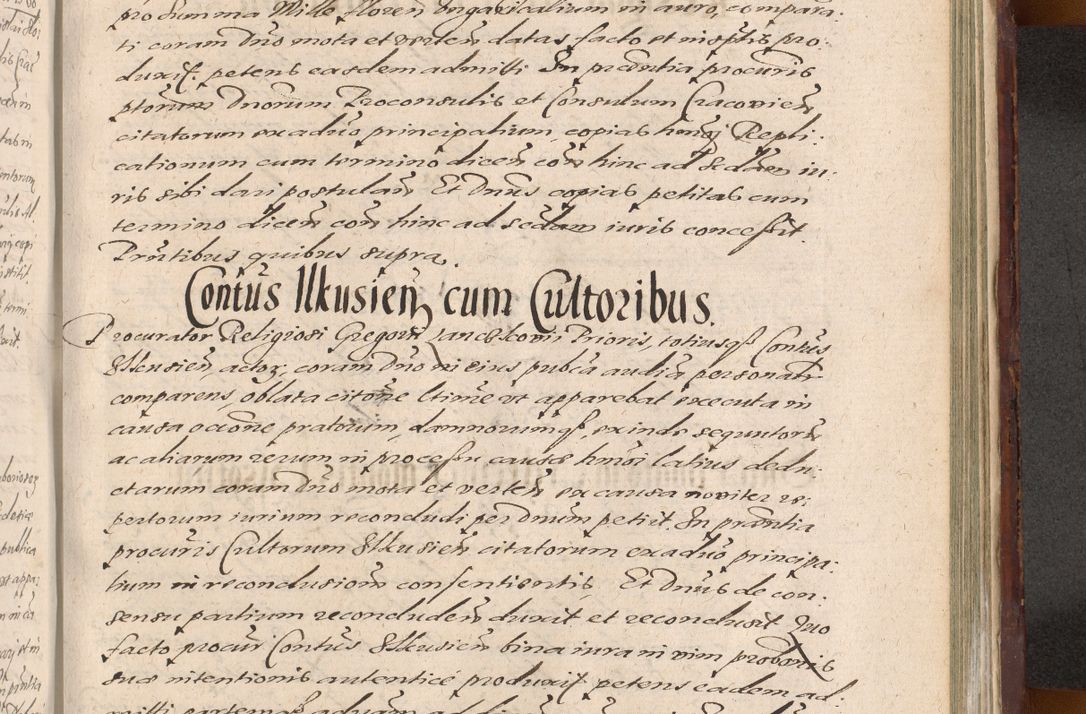 pro summa Mille floren Ungaricalium in auro, compara-
ti coram Dno mota et verten datas facto et in sptis pro-
duxit. petens easdem admitti In prentia procuris
ptorum Dnorum Proconsulis et Consulum Cracovien
citatorum ex aduo principalium, copias hmoi Repli-
cationum cum termino dicen con hinc ad Sedam iu-
ris sibi dari postulan Et Dnus copias petitas cum
termino dicen con hinc ad secdam iuris concessit.
Prntibus quibus supra.
Contus Ilkusien cum Cultoribus.
Procurator Religiosi Gregorii Prioris, totiusq Contus
Ilkusien, actor, coram Dno in eius publca audia personatr
comparens, oblata citone ltime ut apparebat executa in
causa occone pratorum, damnorumq, exinde sequntorum
ac aliarum rerum in processu causae hmoi latius dedu-
ctarum coram Dno mota et verten ex causa noviter re-
pertorum iurium reconcludi per Dnum petiit. In prantia
procuris Cultorum Ilkusien citatorum ex aduo principa-
lium in reconclusionem consentientis Et Dnus de con-
sensu partium reconcluden duxit et reconclusit Quo
facto procur Contus Ilkusien bina iura in vim probonis
suae intentionis autentice produxit petens eadem ad-
mitti